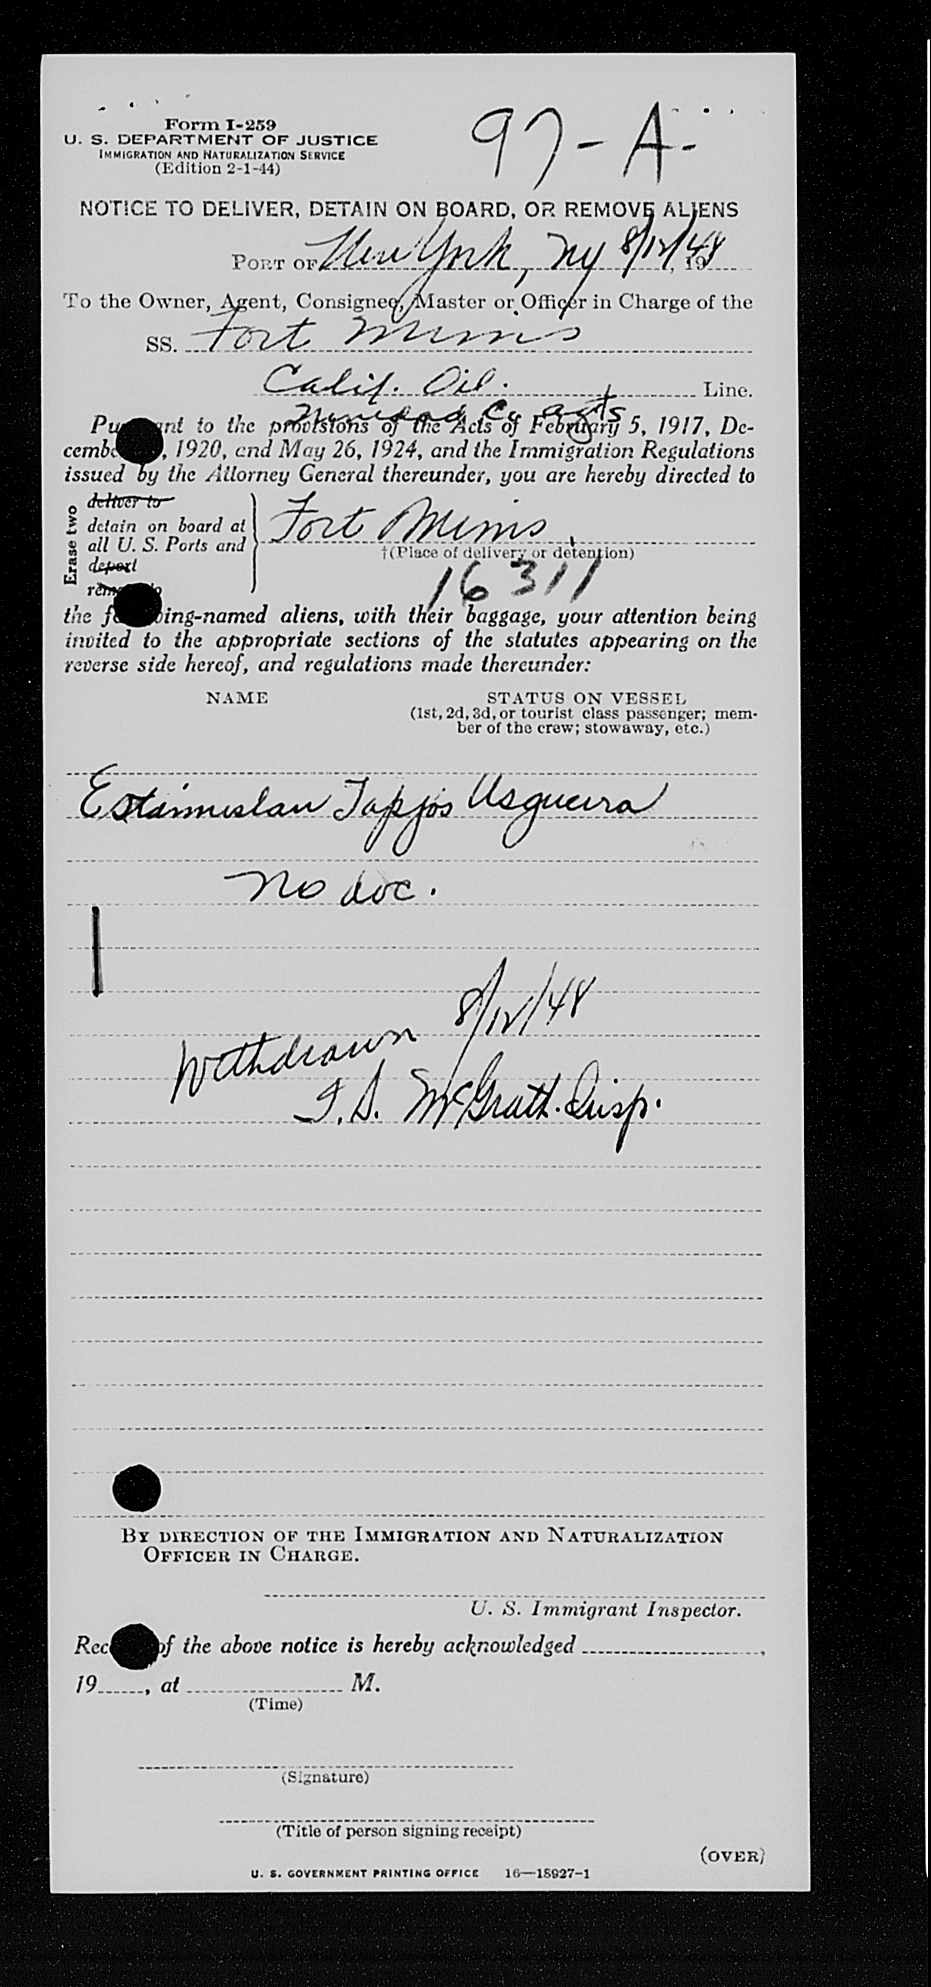 Form I-259
U. S. DEPARTMENT OF JUSTICE
IMMIGRATION AND NATURALIZATION SERVICE
(Edition 2-1-44)
97-A-
NOTICE TO DELIVER, DETAIN ON BOARD, OR REMOVE ALIENS
PORT OF New York, NY 8/12/48, 19
To the Owner, Agent, Consignee, Master or Officer in Charge of the
SS. Fort Mims
Calif. Oil. Line.
Co agts
Pu ant to the provisions of the Acts of February 5, 1917, De-
cembe , 1920, and May 26, 1924, and the Immigration Regulations
issued by the Attorney General thereunder, you are hereby directed to
Erase two
deliver to
detain on board at
all U. S. Ports and
deport
Fort Mims
†(Place of delivery or detention)
16311
the fo ing-named aliens, with their baggage, your attention being
invited to the appropriate sections of the statutes appearing on the
reverse side hereof, and regulations made thereunder:
NAME
STATUS ON VESSEL
(1st, 2d, 3d, or tourist class passenger; mem-
ber of the crew; stowaway, etc.)
Usgueira
No doc.
Withdrawn 8/12/48
McGrath. Insp.
BY DIRECTION OF THE IMMIGRATION AND NATURALIZATION
OFFICER IN CHARGE.
U. S. Immigrant Inspector.
Rec of the above notice is hereby acknowledged ,
19 , at M.
(Time)
(Signature)
(Title of person signing receipt)
(OVER)
U. S. GOVERNMENT PRINTING OFFICE 16—18927-1